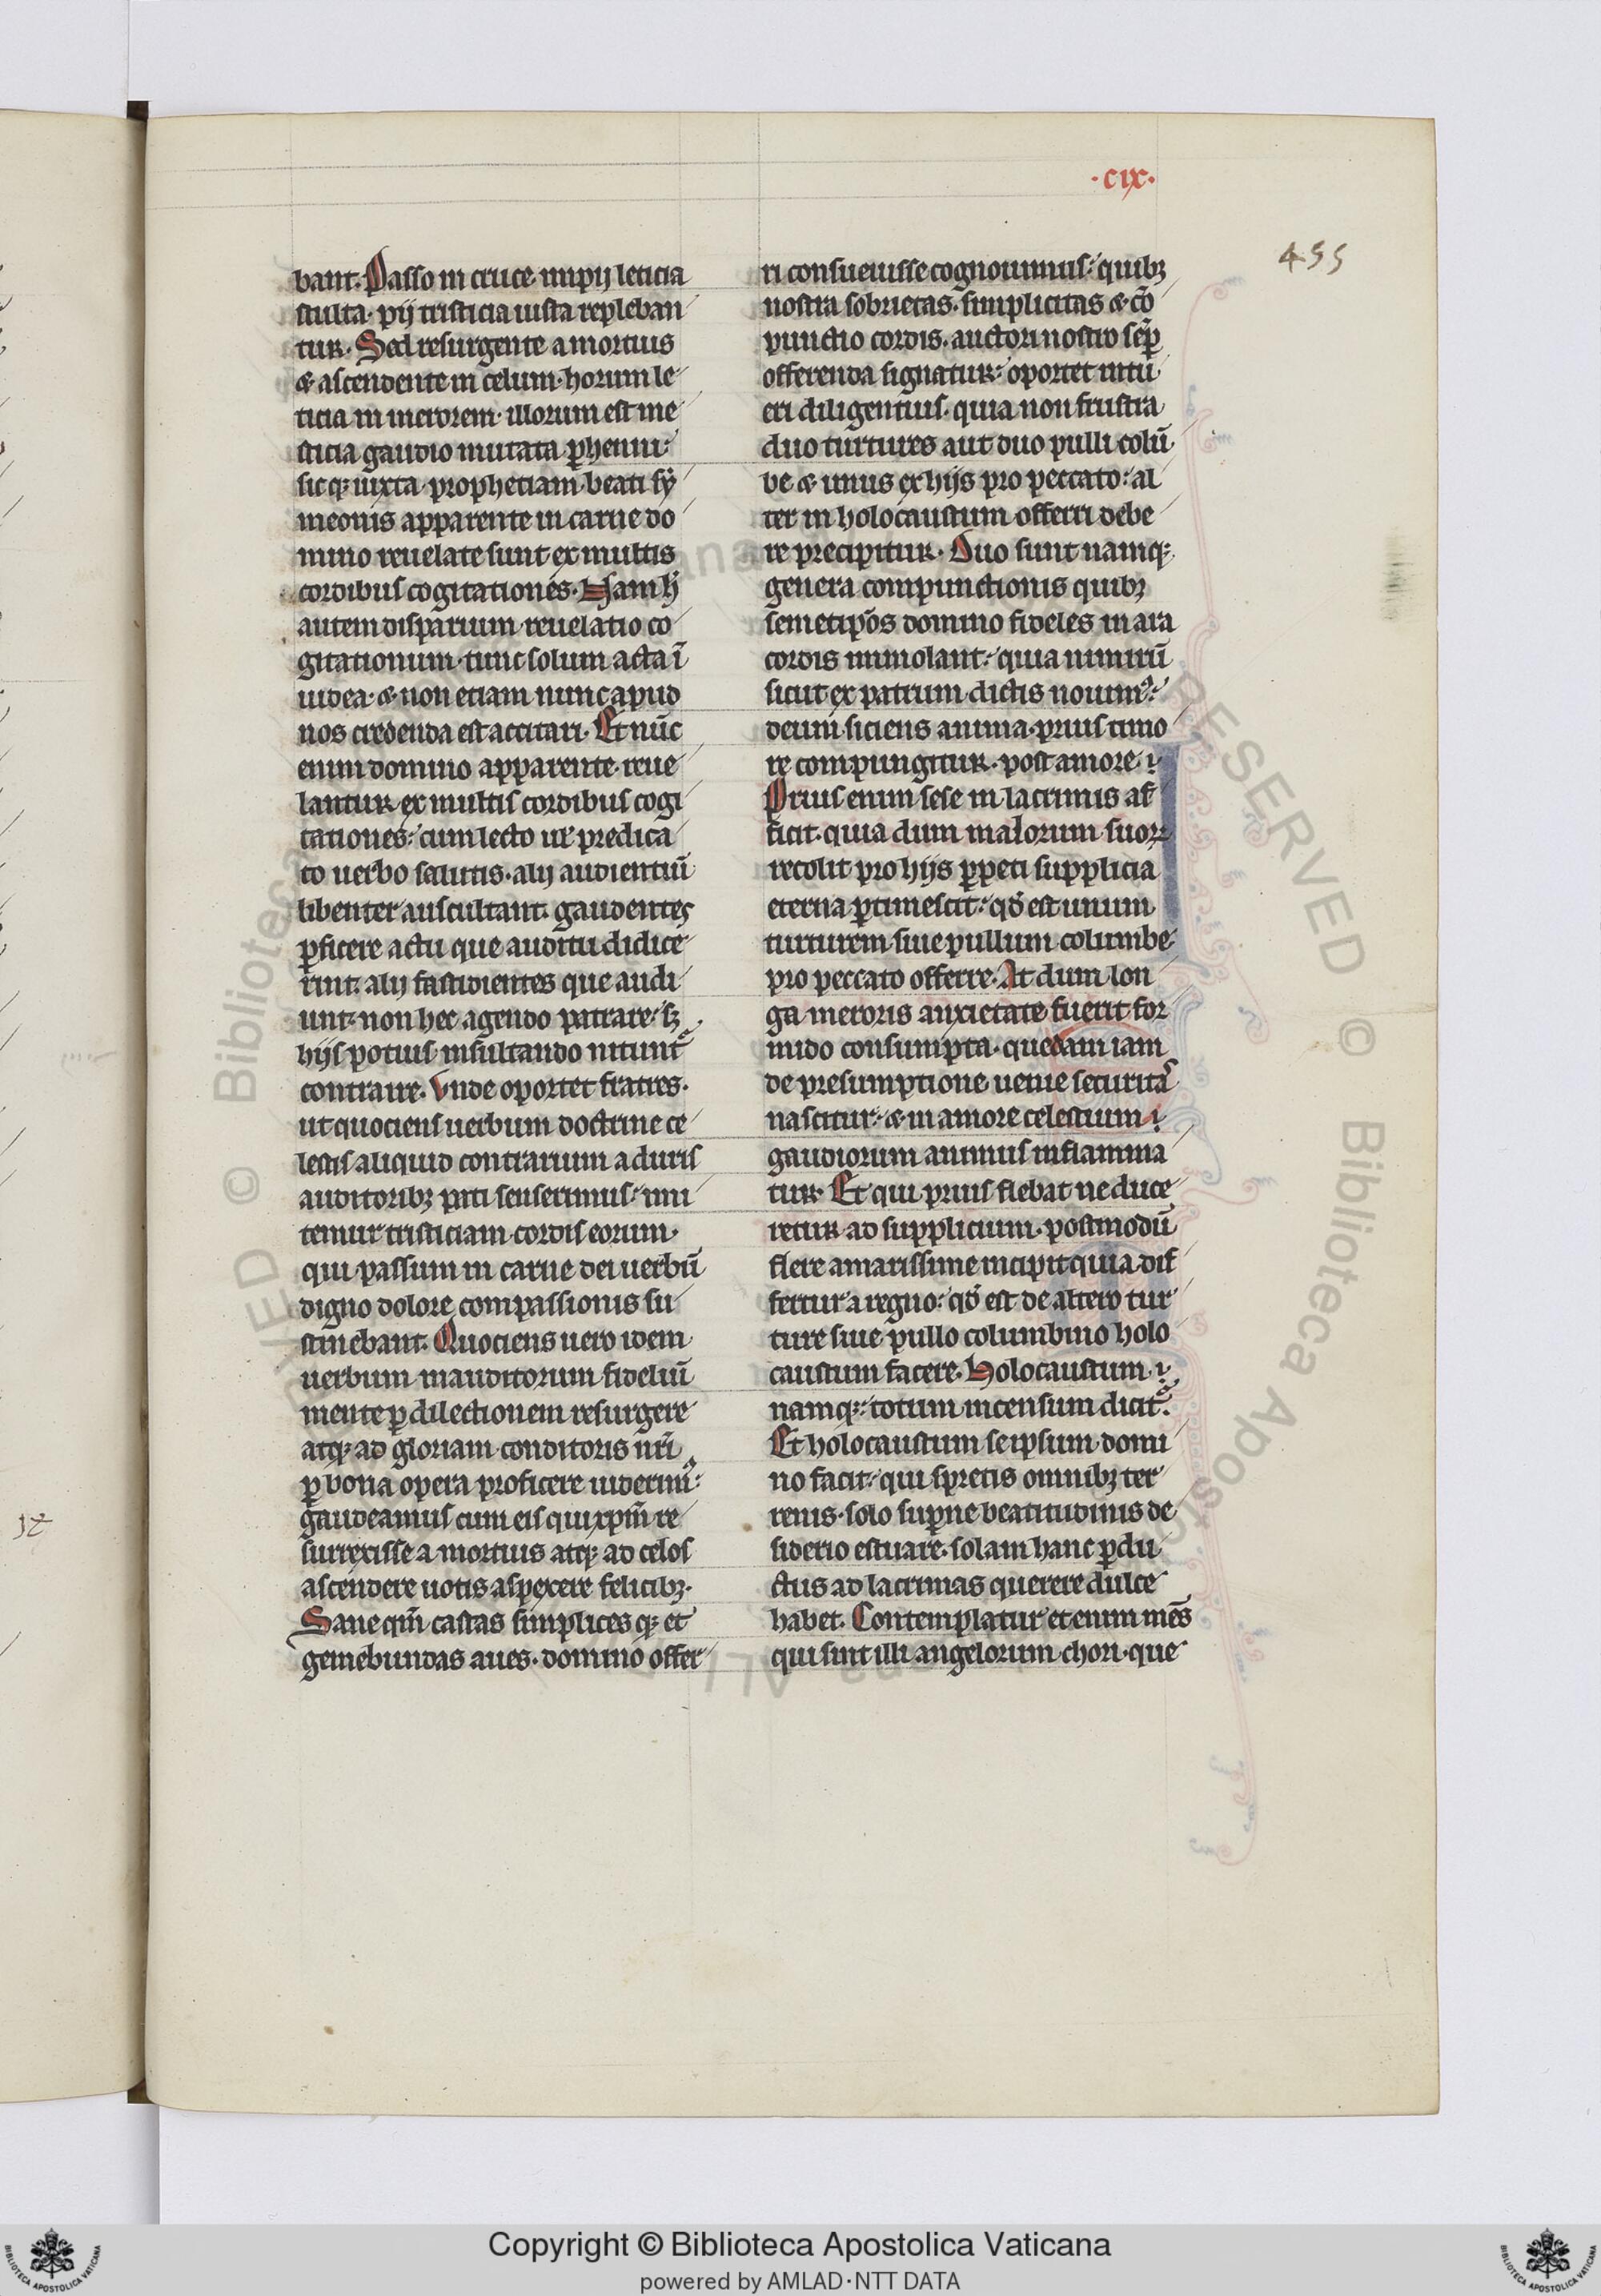 ·cix·
455
bant. Passo in cruce impij leticia
stulta· pij tristicia iusta repleban
tur. Sed resurgente a mortuis
& ascendente in celum· horum le
ticia in merorem· illorum est me
sticia gaudio mutata ꝑhenni:
sicqꝫ iuxta prophetiam beati sy
meonis apparente in carne do
mino reuelate sunt ex multis
cordibus cogitationes. Nam h̄
autem disparium reuelatio co
gitationum· tunc solum acta ī
iudea· & non etiam nunc apud
nos credenda est accitari. Et nūc
enim domino apparente reue
lantur ex multis cordibus cogi
tationes: cum lecto uel predica
to uerbo salutis· alij audientiū
libenter auscultant· gaudentes
ꝑficere actu que auditu didice
rint· alij fastidientes que audi
unt· non hec agendo patrare· sꝫ
hijs potius insultando nitunt᷑
contraire. Vnde oportet fratres·
ut quociens uerbum doctrine ce
lestis aliquid contrarium a duris
auditoribꝫ pati senserimus: imi
temur tristiciam cordis eorum·
qui passum in carne dei uerbū
digno dolore compassionis su
stinebant. Quociens uero idem
uerbum in auditorum fideliū
mente ꝑ dilectionem resurgere
atqꝫ ad gloriam conditoris nr̄i
ꝑ bona opera proficere uiderimꝰ:
gaudeamus cum eis qui xpm̄ re
surrexisse a mortuis atqꝫ ad celos
ascendere uotis aspexere felicibꝫ.
Sane qm̄ castas simplicesqꝫ et
gemebundas aues· domino offer
ri consueuisse cognouimus: quibꝫ
nostra sobrietas· simplicitas & cō
punctio cordis· auctori nostro sēp
offerenda signatur: oportet intu
eri diligentius· quia non frustra
duo turtures aut duo pulli colū
be & unus ex hijs pro peccato: al
ter in holocaustum offerri debe
re precipitur. Duo sunt namqꝫ
genera compunctionis quibꝫ
semetip̄os domino fideles in ara
cordis immolant: quia nimirū
sicut ex patrum dictis nouimꝰ:
deum siciens anima· prius timo
re compungitur· post amore.
Prius enim sese in lacrimis af
ficit· quia dum malorum suoꝝ
recolit pro hijs ꝑpeti supplicia
eterna ꝑtimescit: qd̄ est unum
turturem siue pullum columbe
pro peccato offerre. At dum lon
ga meroris anxietate fuerit for
mido consumpta· quedam iam
de presumptione uenie securitas
nascitur: & in amore celestium
gaudiorum animus inflamma
tur. Et qui prius flebat ne duce
retur ad supplicium· postmodū
flere amarissime incipit quia dif
fertur a regno: qd̄ est de altero tur
ture siue pullo columbino holo
caustum facere. Holocaustum
namqꝫ: totum incensum dicit᷑.
Et holocaustum seipsum domi
no facit: qui spretis omnibꝫ ter
renis· solo suꝑne beatitudinis de
siderio estuare· solam hanc ꝑdu
ctus ad lacrimas querere dulce
habet. Contemplatur etenim mēs
qui sint illi angelorum chori· que
Copyright © Biblioteca Apostolica Vaticana
powered by AMLAD·NTT DATA